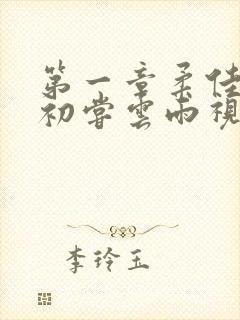 第一章柔佳
初尝云雨视
李玲玉